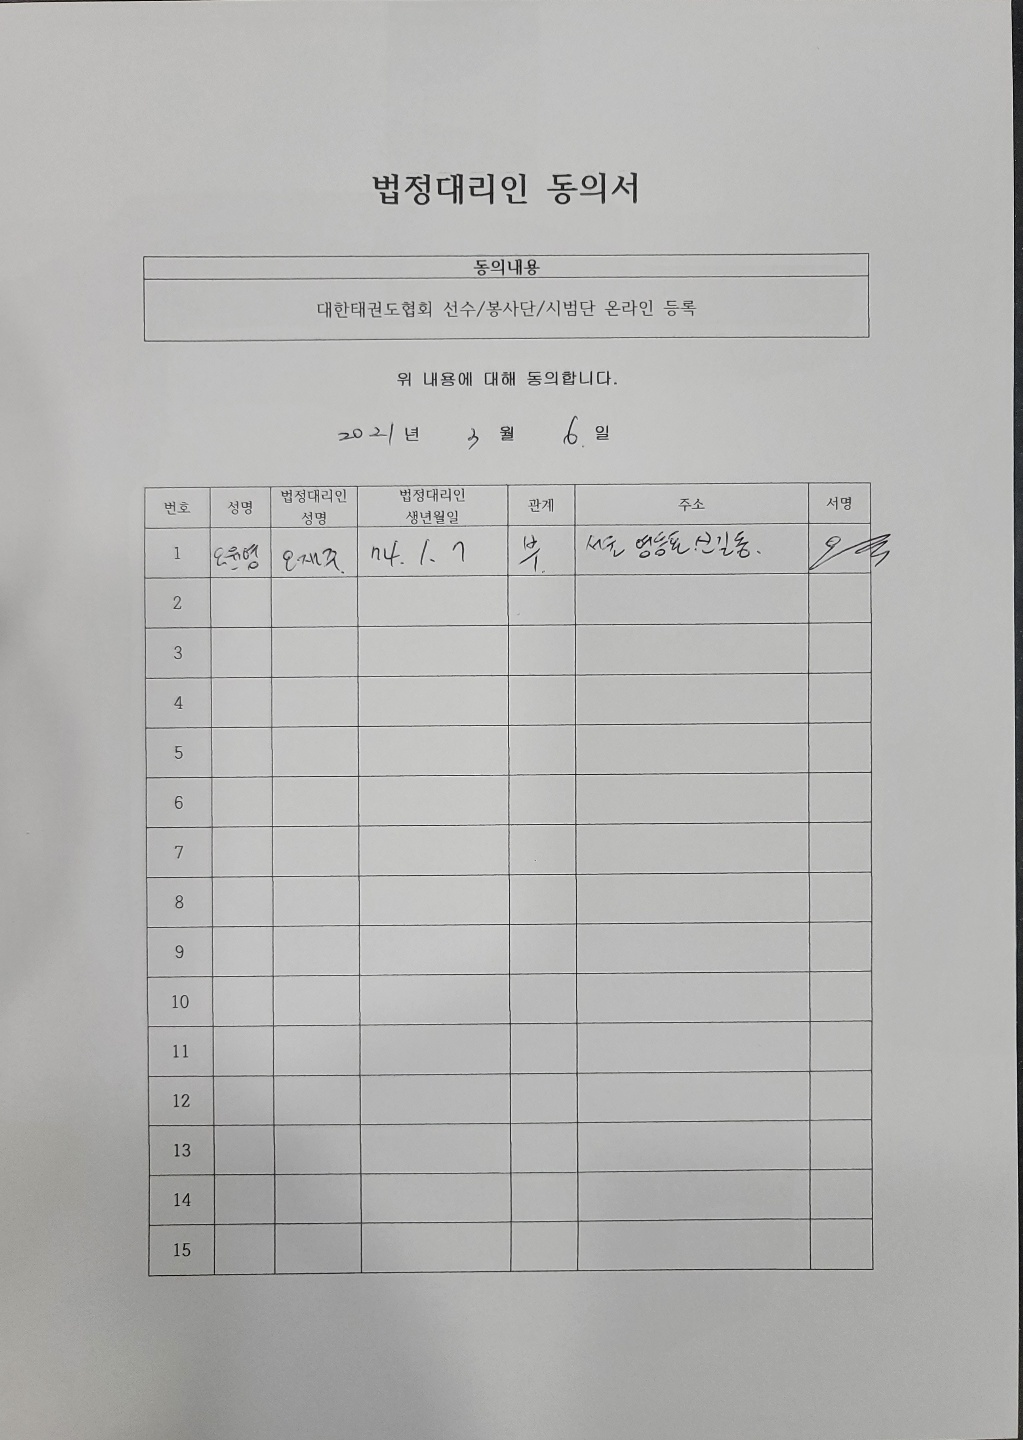 법정대리인 동의서
동의내용
대한태권도협회 선수/봉사단/시범단 온라인 등록
위 내용에 대해 동의합니다.
2021년 3월 6일
번호 성명 법정대리인 성명 법정대리인 생년월일 관계 주소 서명
1 오윤영 오재주 74. 1. 7 부 서울 영등포 신길동.
2
3
4
5
6
7
8
9
10
11
12
13
14
15